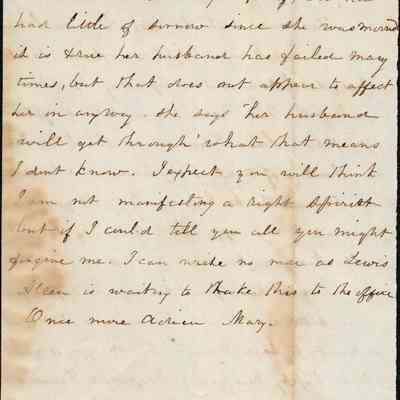 had little of sorrow since she was married
it is true her husband has failed many
times, but that does not appear to affect
her in anyway. she says "her husband
will get through" what that means
I dont know. I expect you will think
I am not manifesting a right spirit
but if I could tell you all you might
forgive me. I can write no more as Lewis
is waiting to take this to the office
Once more adieu Mary.